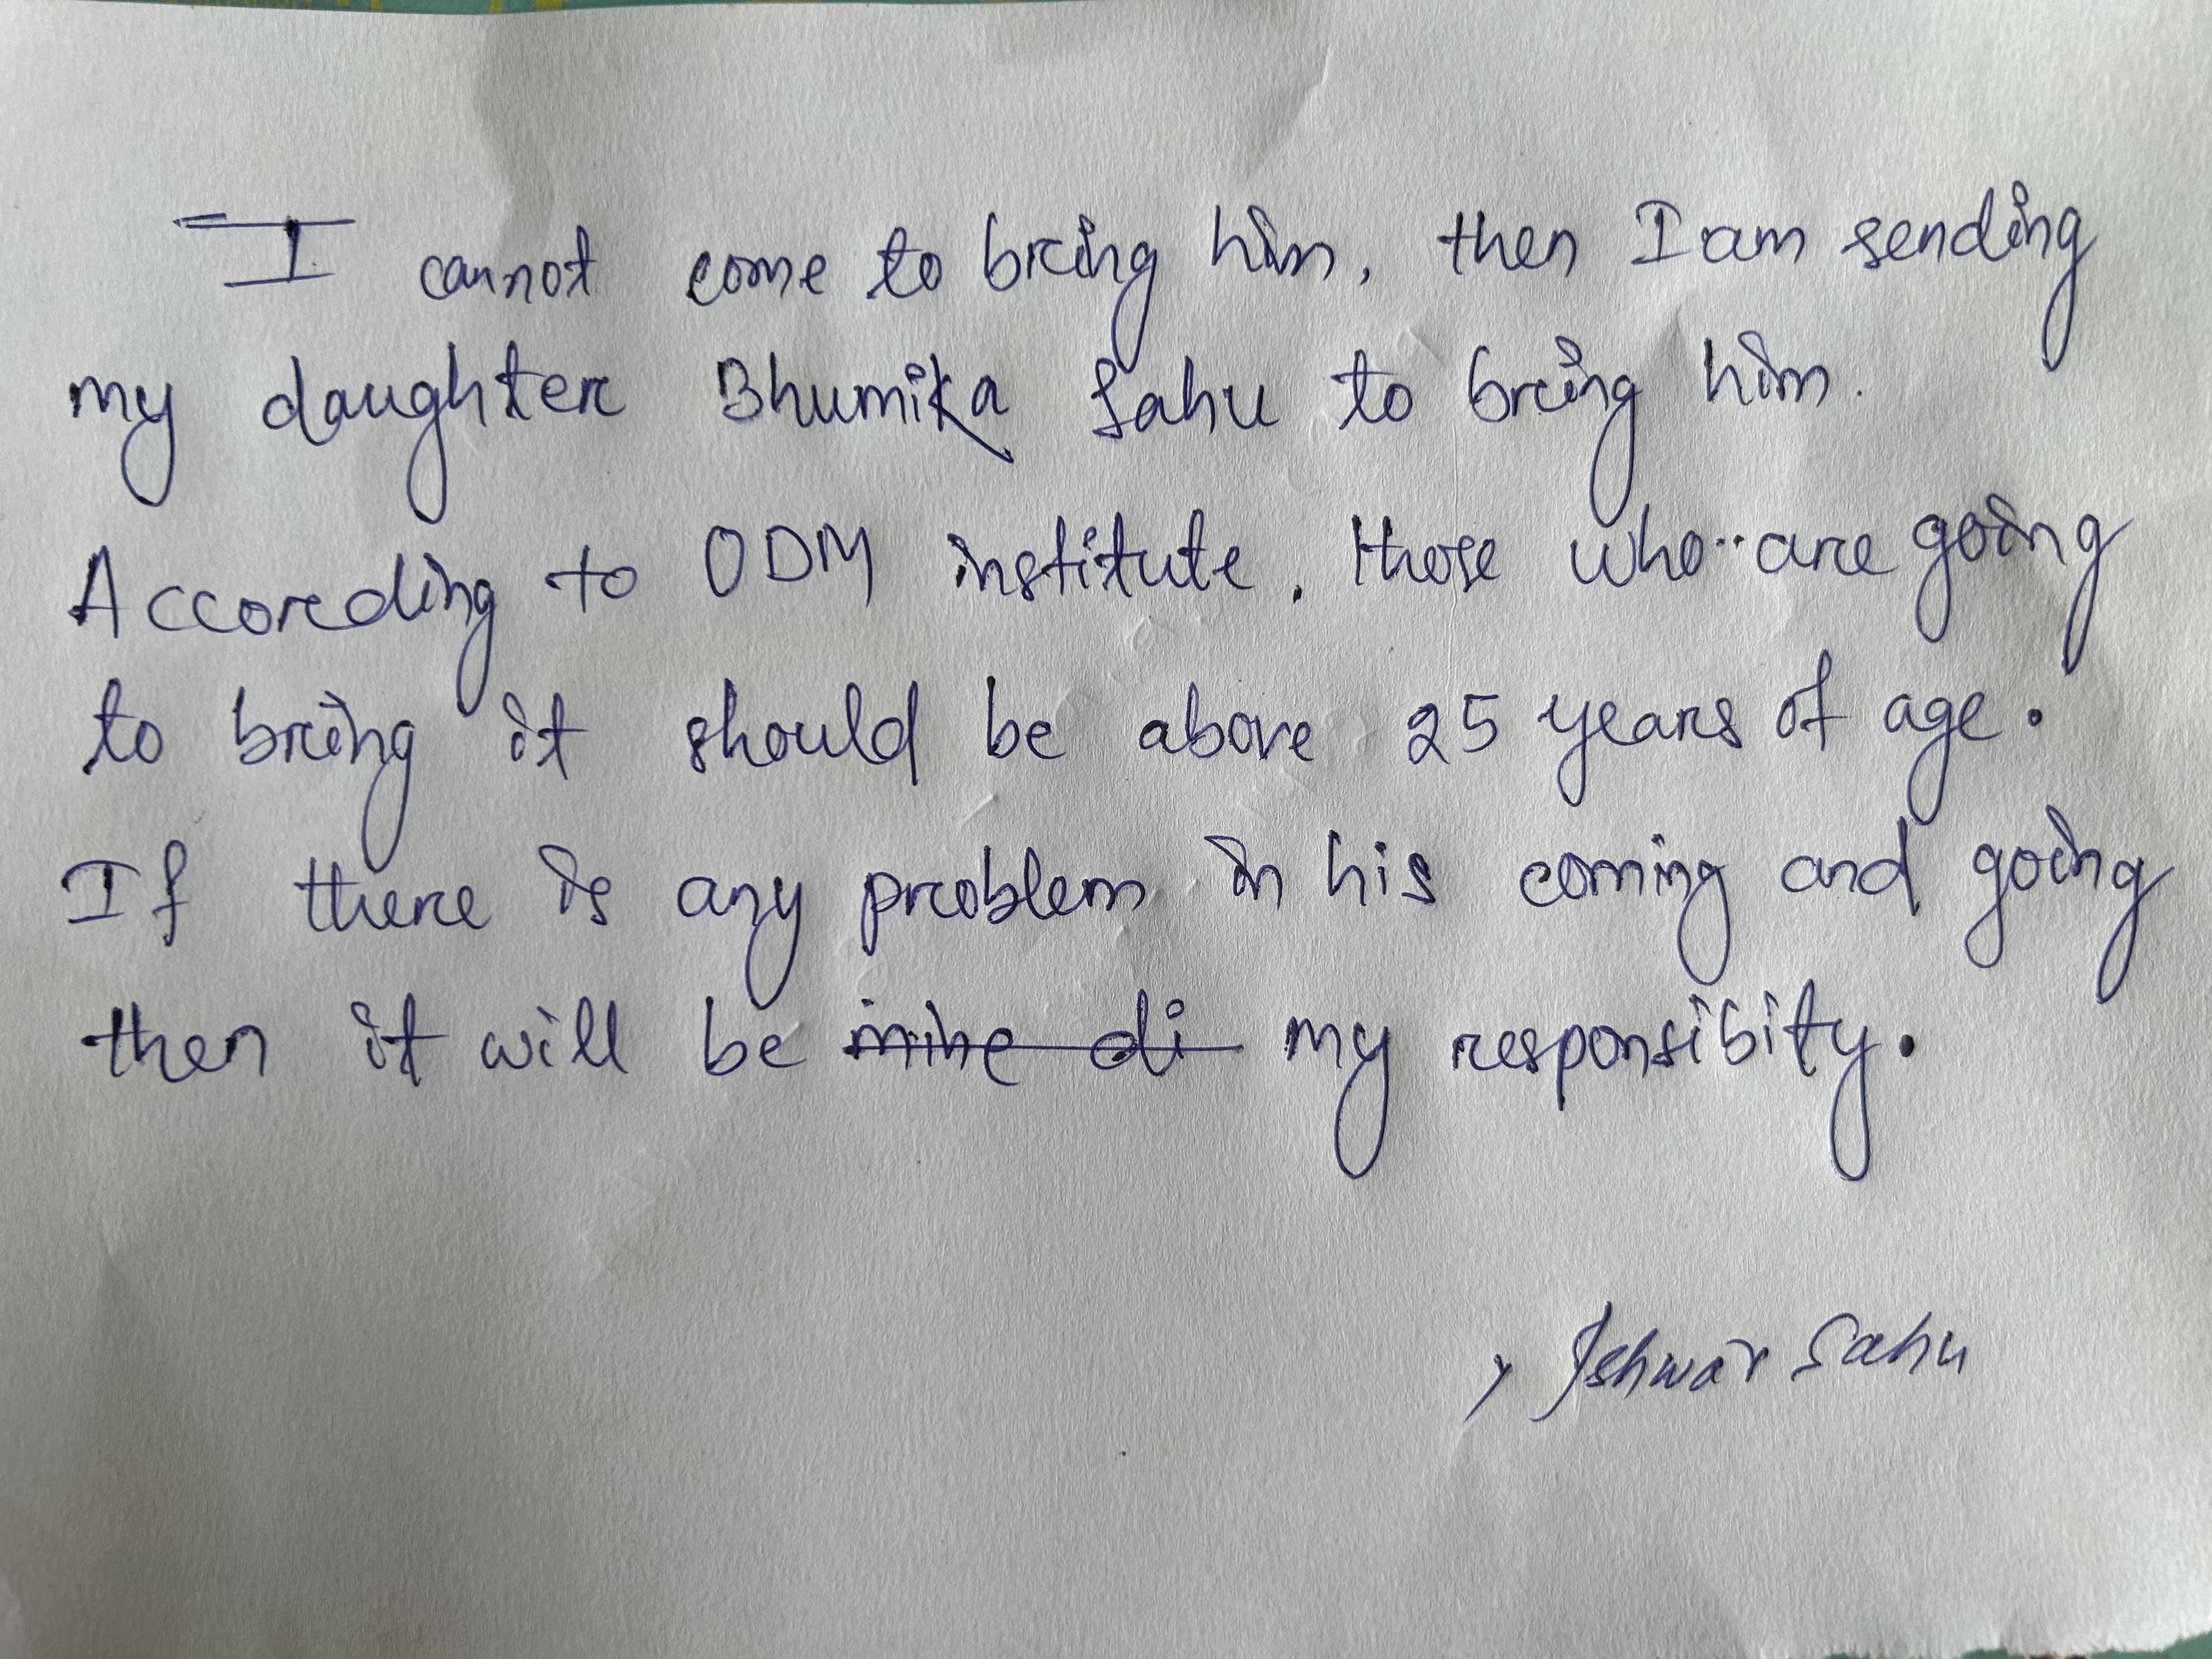 I cannot come to bring him, then I am sending
my daughter Bhumika Sahu to bring him.
According to ODM institute, those who are going
to bring it should be above 25 years of age.
If there is any problem in his coming and going
then it will be mine di my responsibity.
Ishwar Sahu